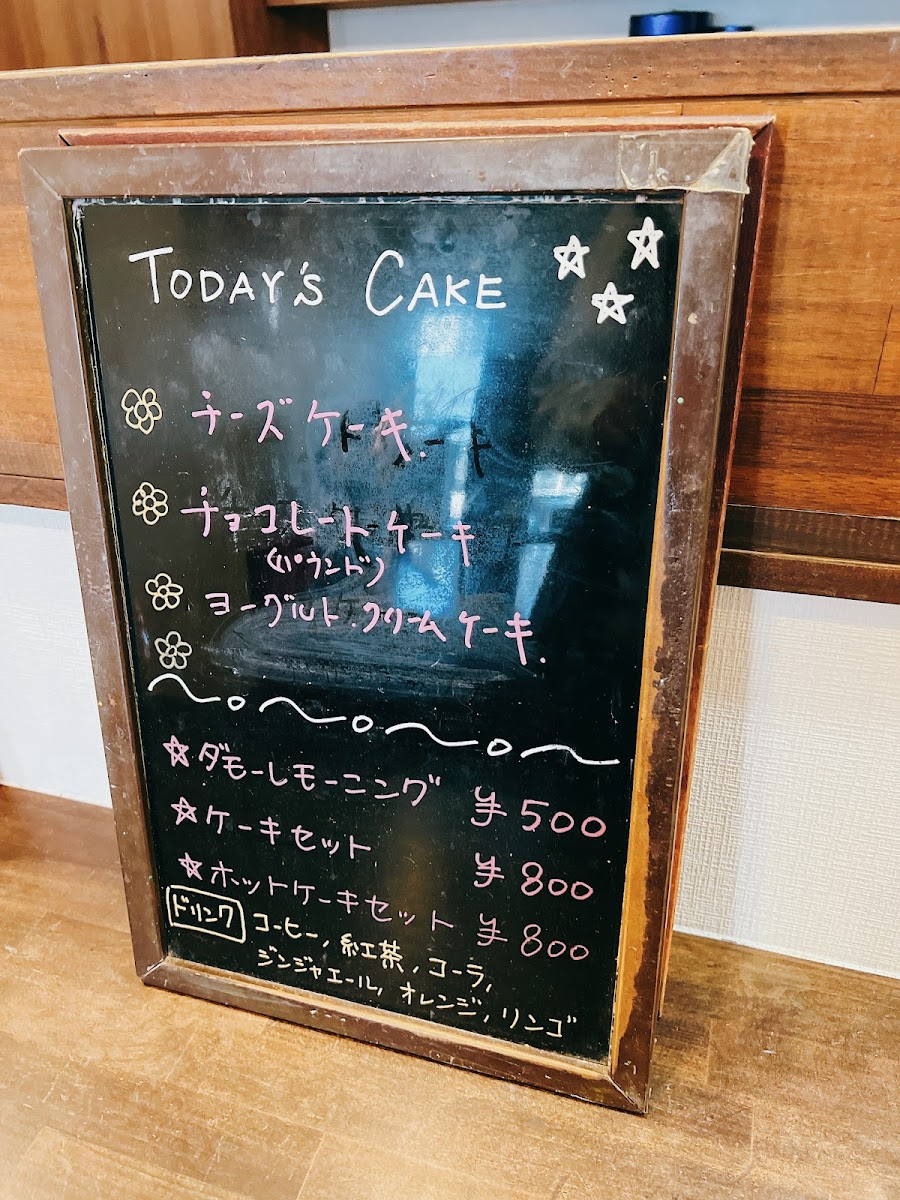 TODAY'S CAKE
チーズケーキ.
チョコレートケーキ
(パウンド)
ヨーグルト.クリームケーキ.
☆ダモーレモーニング ¥500
☆ケーキセット ¥800
☆ホットケーキセット ¥800
ドリンク コーヒー, 紅茶, コーラ,
ジンジャエール, オレンジ, リンゴ